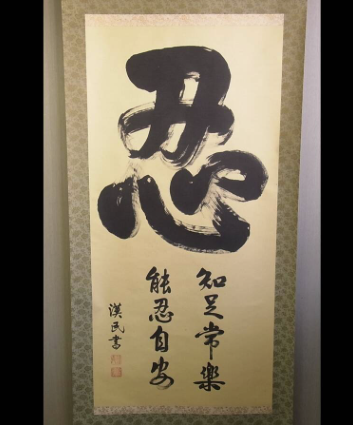 忍
知足常樂
能忍自安
漢民書